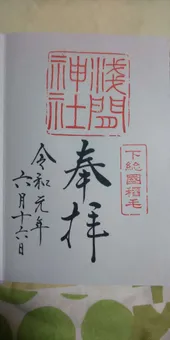 奉拝
下総國稲毛
浅間
神社
令和元年
六月十六日